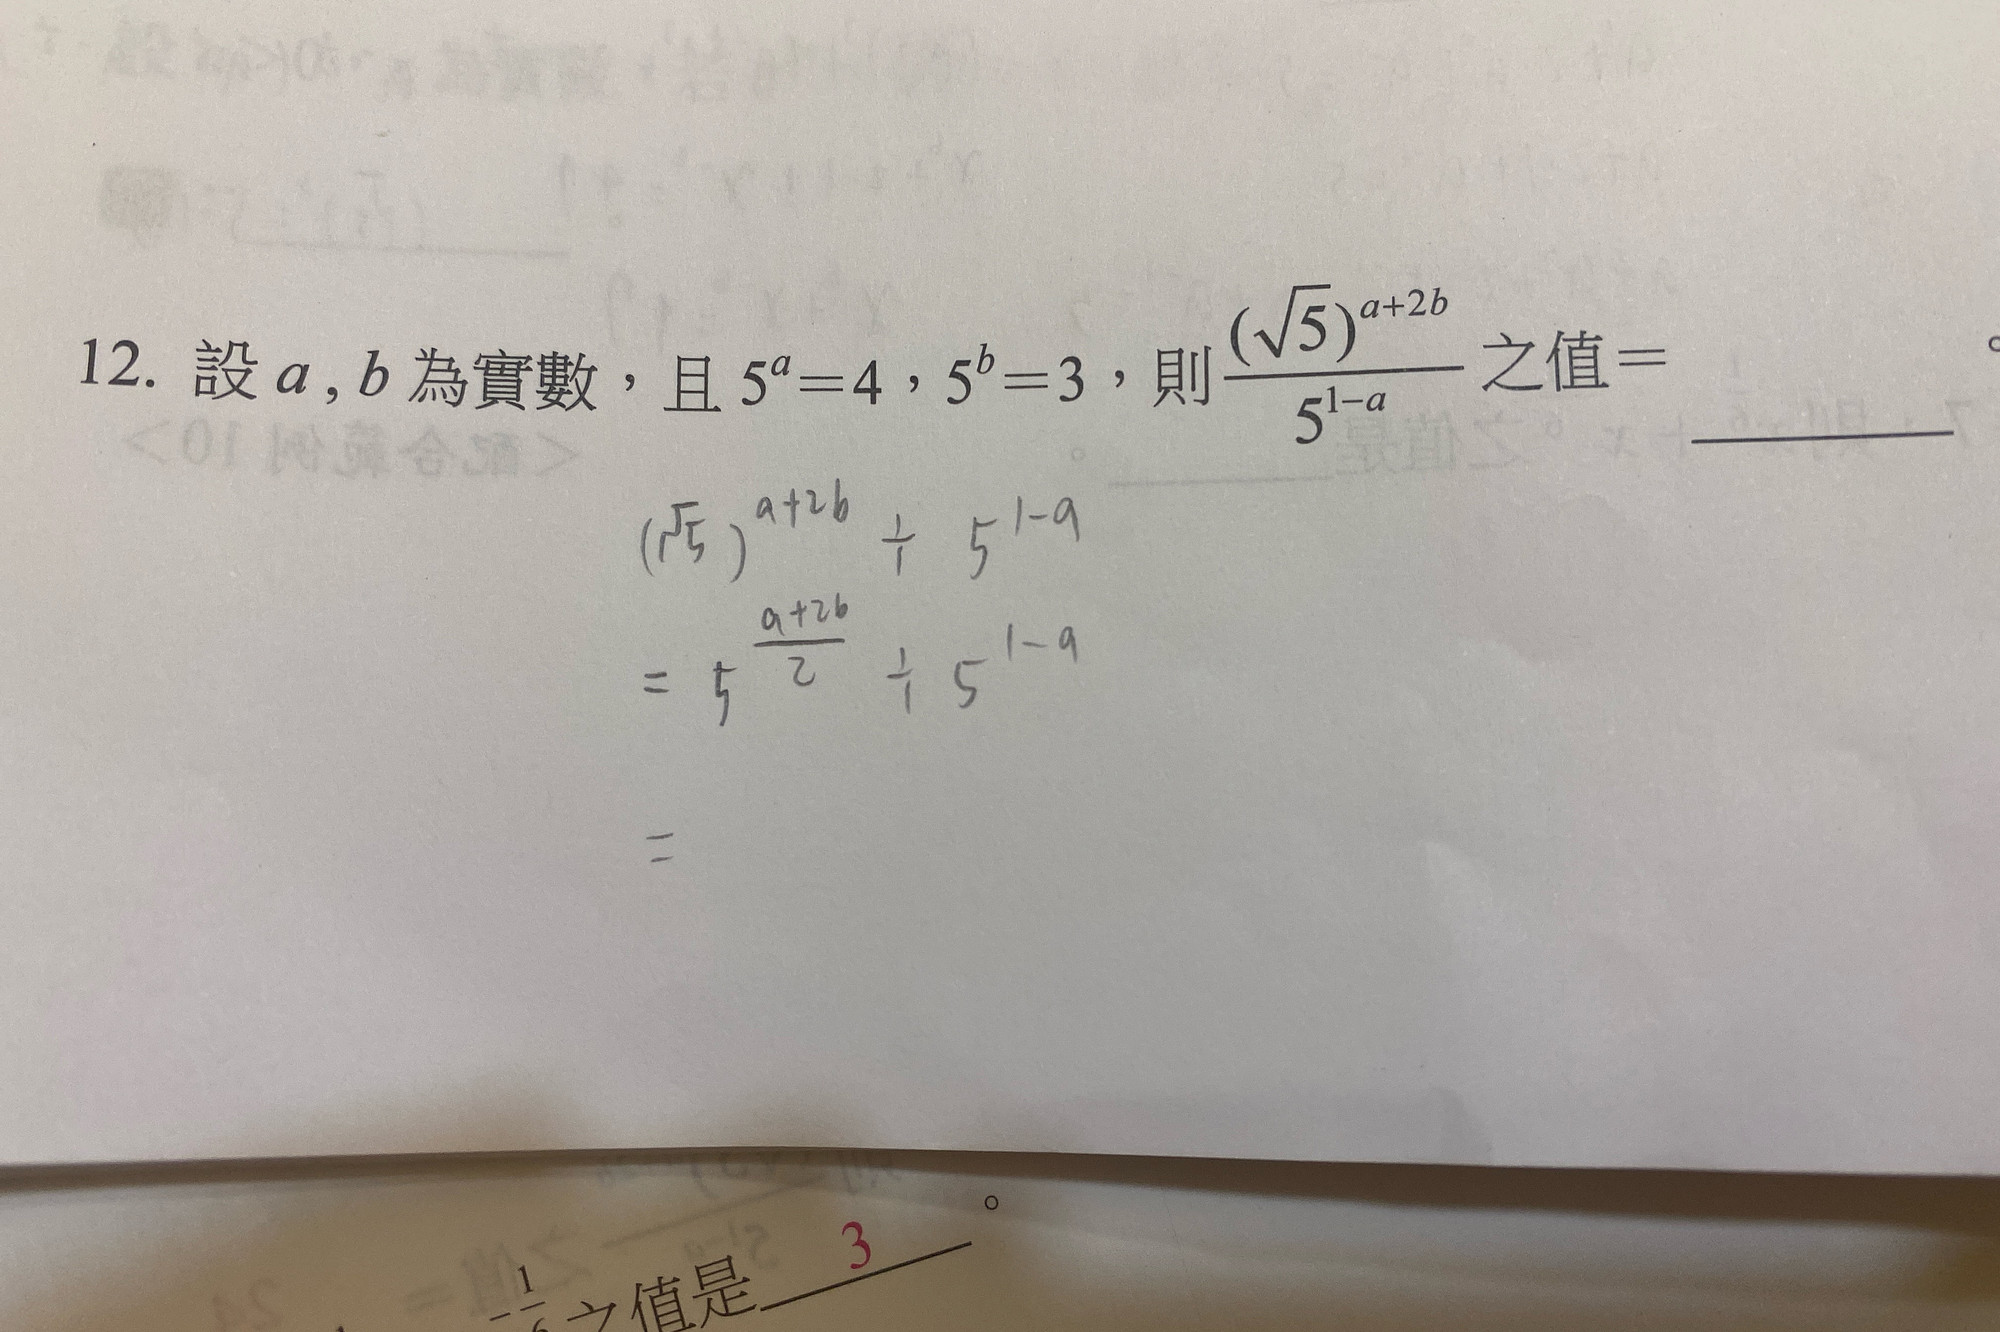 12. 設 a , b 為實數，且 5^a＝4，5^b＝3，則 (√5)^{a+2b} / 5^{1−a} 之值＝________。
(√5)^{a+2b} ÷ 5^{1-a}
= 5^{\frac{a+2b}{2}} ÷ 5^{1-a}
=
之值是 3 。